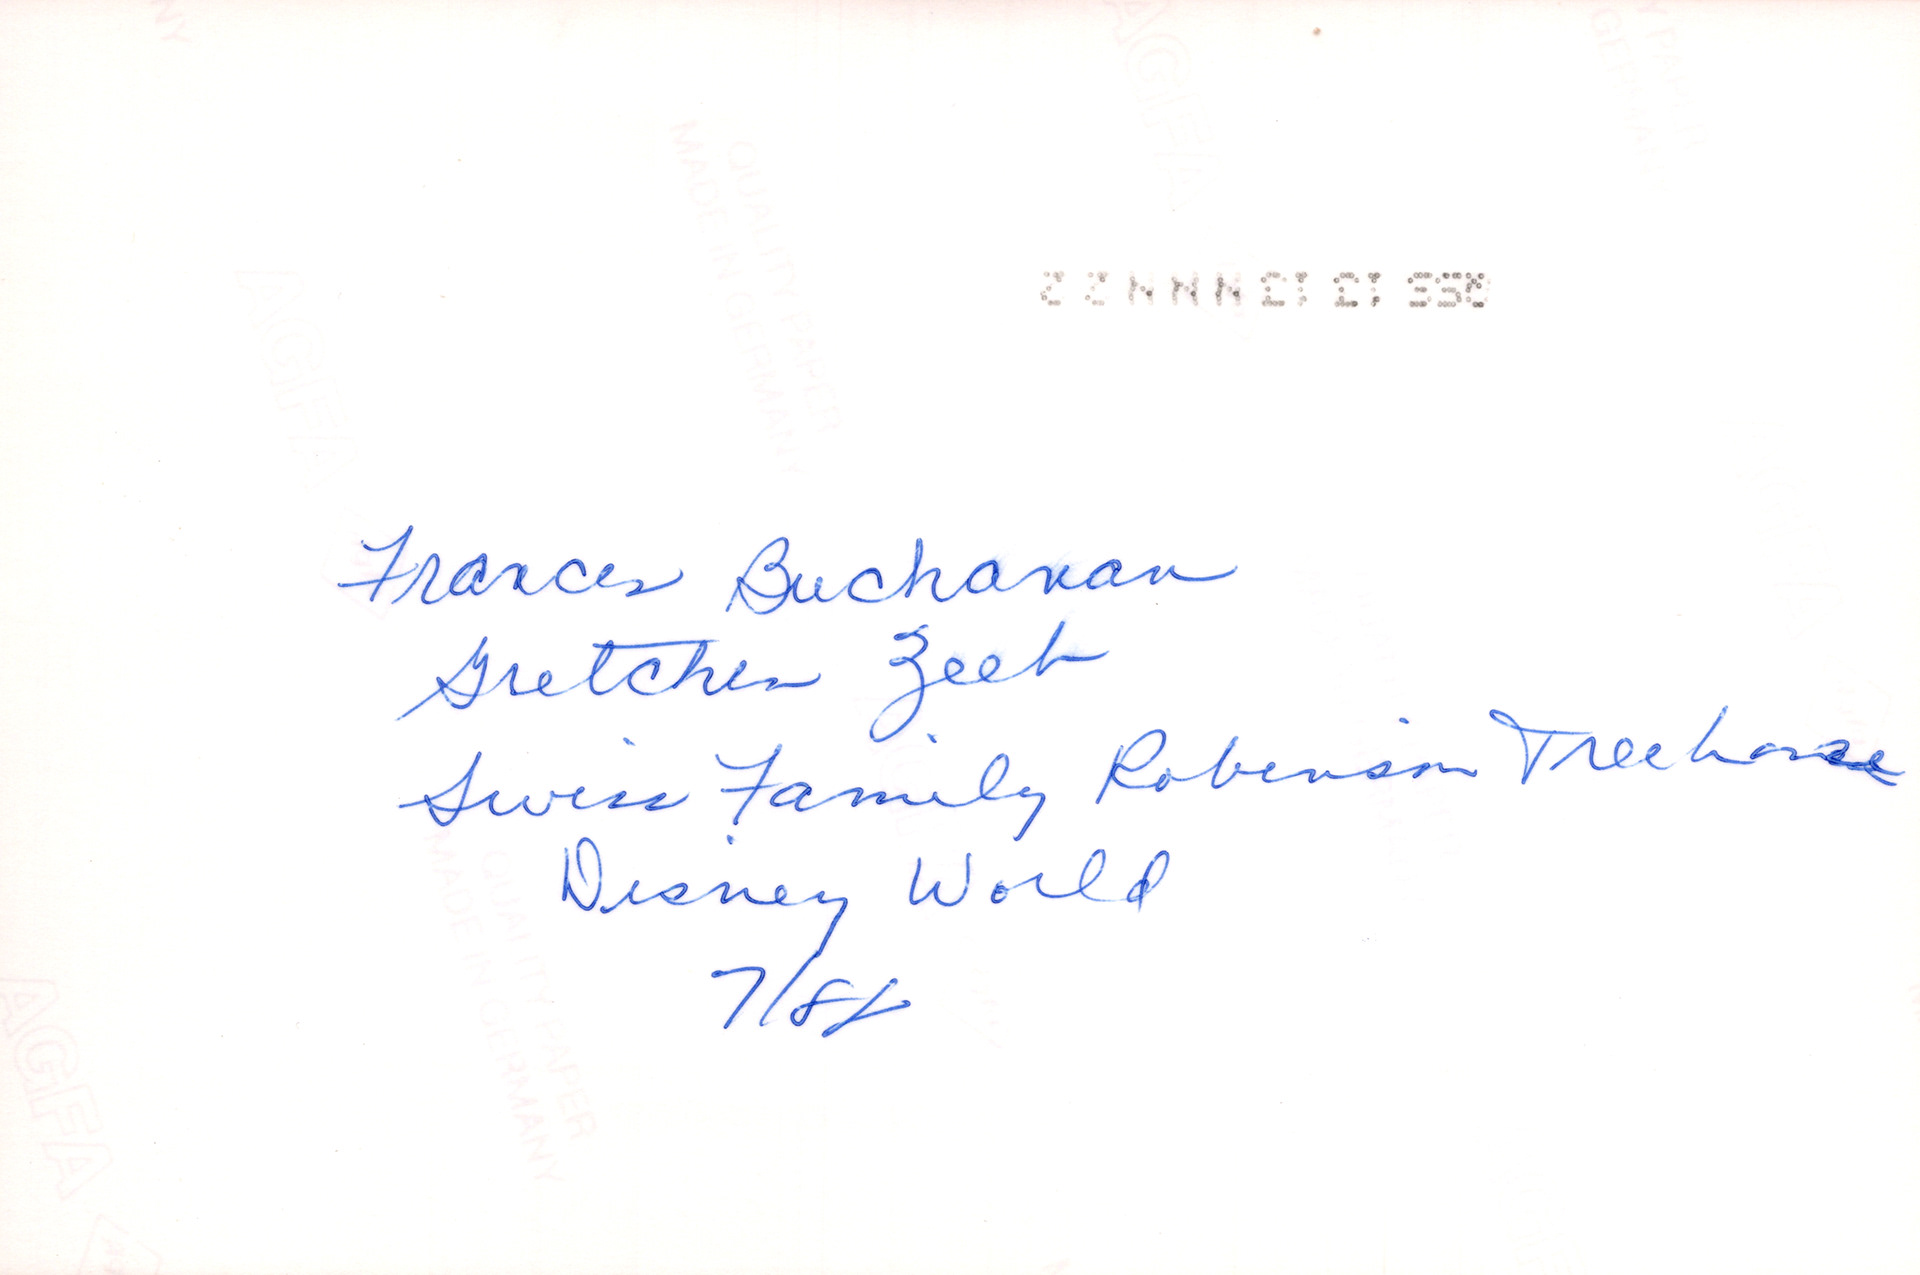 AGFA
QUALITY PAPER
MADE IN GERMANY
Frances Buchanan
Gretchen Zeeb
Swiss Family Robinson Treehouse
Disney World
7/84
QUALITY PAPER
MADE IN GERMANY
AGFA